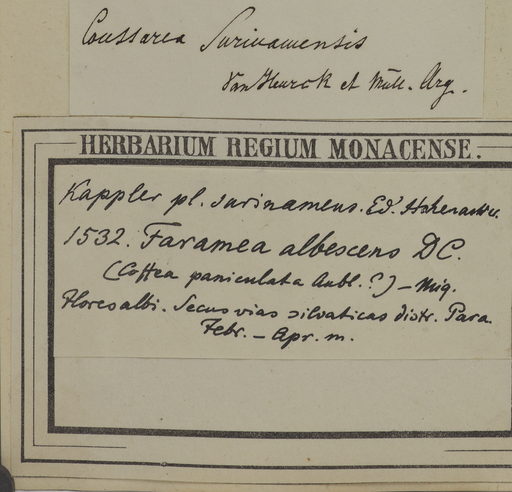 Coussarea Surinamensis
Van Heurck et Müll. Arg.
HERBARIUM REGIUM MONACENSE.
Kappler pl. surinamens. Ed. Hohenacker.
1532. Faramea albescens DC.
(Coffea paniculata Aubl. ?) – Miq.
Flores albi. Secus vias silvaticas distr. Para.
Febr. – Apr. m.